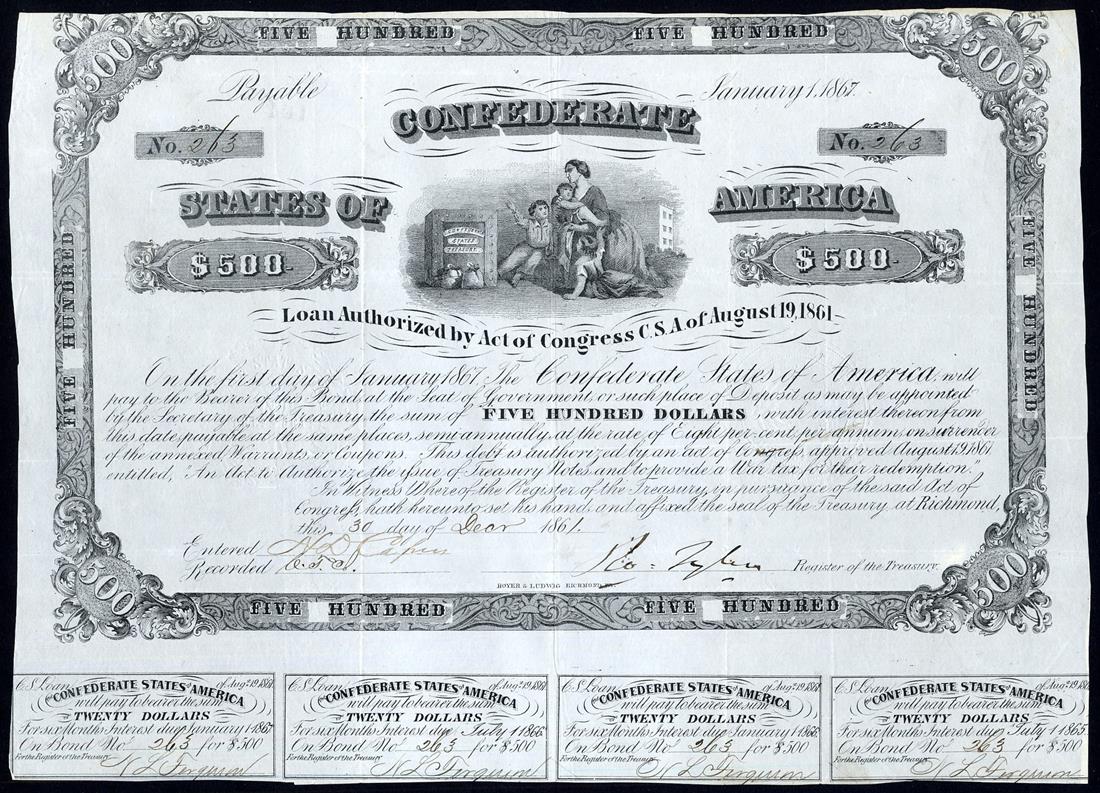 FIVE HUNDRED FIVE HUNDRED
500 500
Payable January 1, 1867.
CONFEDERATE
No. 263 No. 263
STATES OF AMERICA
CONFEDERATE
STATES
TREASURY
$500 $500
FIVE HUNDRED
FIVE HUNDRED
Loan Authorized by Act of Congress C.S.A. of August 19, 1861
On the first day of January 1867, The Confederate States of America, will
pay to the Bearer of this Bond, at the Seat of Government, or such place of Deposit as may be appointed
by the Secretary of the Treasury, the sum of FIVE HUNDRED DOLLARS, with interest thereon from
this date, payable at the same places, semi-annually, at the rate of Eight per-cent, per annum, on surrender
of the annexed, Warrants, or Coupons. This debt is authorized by an act of Congress, approved August 19, 1861,
entitled, "An Act to Authorize the issue of Treasury Notes, and to provide a War tax for their redemption."
In Witness Whereof the Register of the Treasury, in pursuance of the said Act of
Congress, hath hereunto set his hand, and affixed the seal of the Treasury, at Richmond,
this 30 day of Decr 1861.
Entered
Recorded
Ro. Tyler Register of the Treasury.
HOYER & LUDWIG RICHMOND, VA.
500 500
FIVE HUNDRED FIVE HUNDRED
C.S. Loan of Augt. 19, 1861
CONFEDERATE STATES of AMERICA
will pay to bearer the sum
of TWENTY DOLLARS
For six Months Interest due January 1, 1867
On Bond No. 263 for $500
For the Register of the Treasury
N L Ferguson
C.S. Loan of Augt. 19, 1861
CONFEDERATE STATES of AMERICA
will pay to bearer the sum
of TWENTY DOLLARS
For six Months Interest due July 1 1866
On Bond No. 263 for $500
For the Register of the Treasury
N L Ferguson
C.S. Loan of Augt. 19, 1861
CONFEDERATE STATES of AMERICA
will pay to bearer the sum
of TWENTY DOLLARS
For six Months Interest due January 1 1866
On Bond No. 263 for $500
For the Register of the Treasury
N L Ferguson
C.S. Loan of Augt. 19, 1861
CONFEDERATE STATES of AMERICA
will pay to bearer the sum
of TWENTY DOLLARS
For six Months Interest due July 1 1865
On Bond No. 263 for $500
For the Register of the Treasury
N L Ferguson